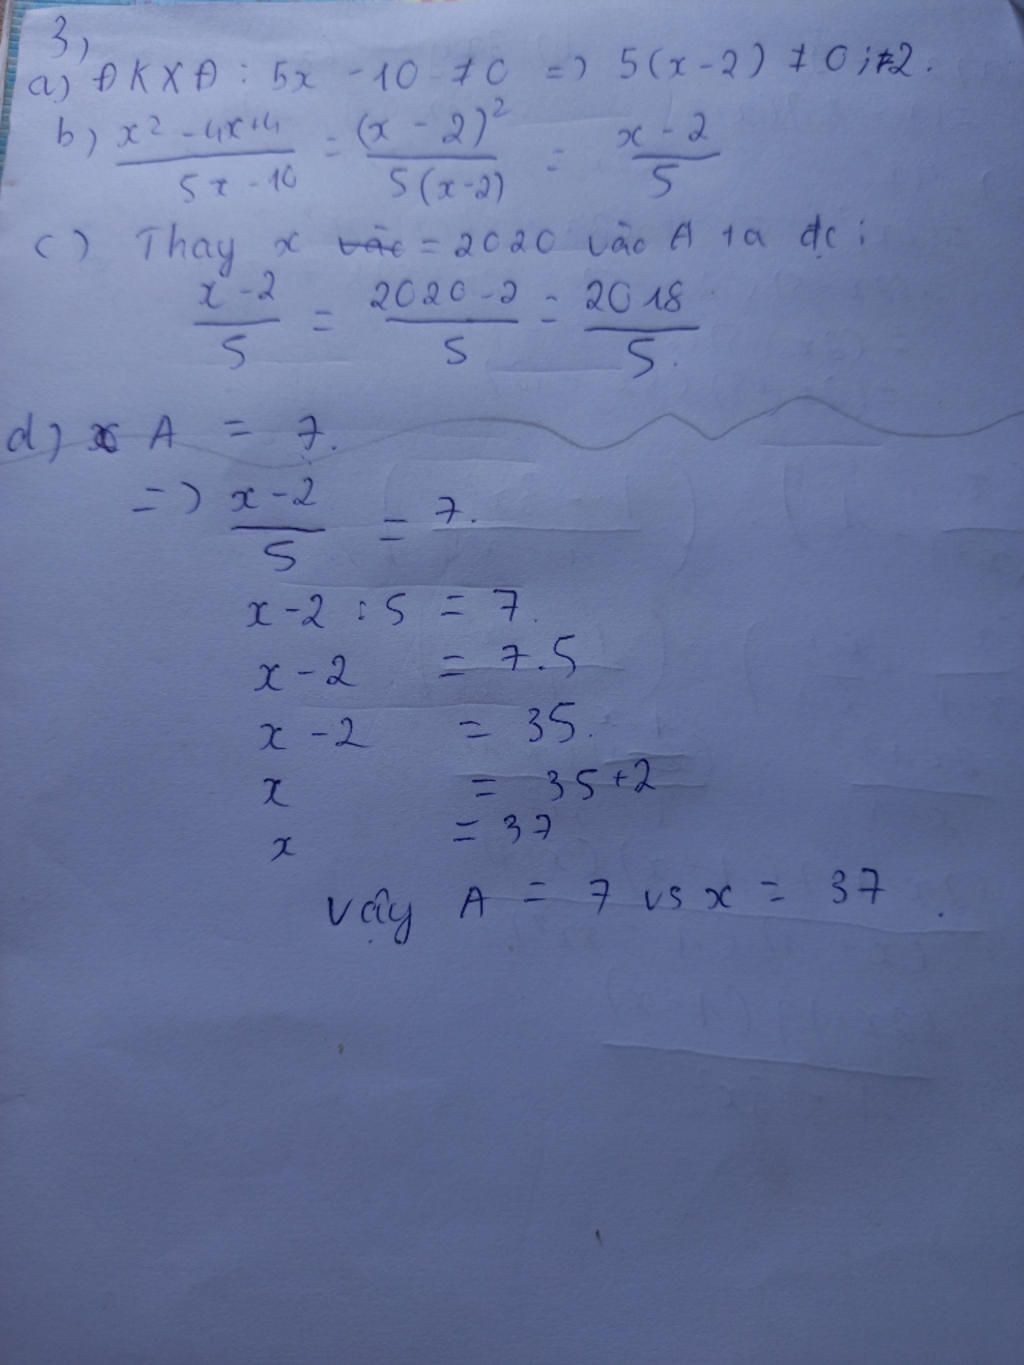 3,
a) ĐKXĐ : 5x - 10 ≠ 0 => 5(x-2) ≠ 0 ; ≠ 2.
b) x² - 4x+4 / 5x - 10 = (x - 2)² / 5(x-2) = x - 2 / 5
c) Thay x vào = 2020 vào A ta đc :
x - 2 / 5 = 2020 - 2 / 5 = 2018 / 5.
d) A = 7.
=> x - 2 / 5 = 7.
x - 2 : 5 = 7.
x - 2 = 7.5
x - 2 = 35.
x = 35+2
x = 37
Vậy A = 7 vs x = 37.